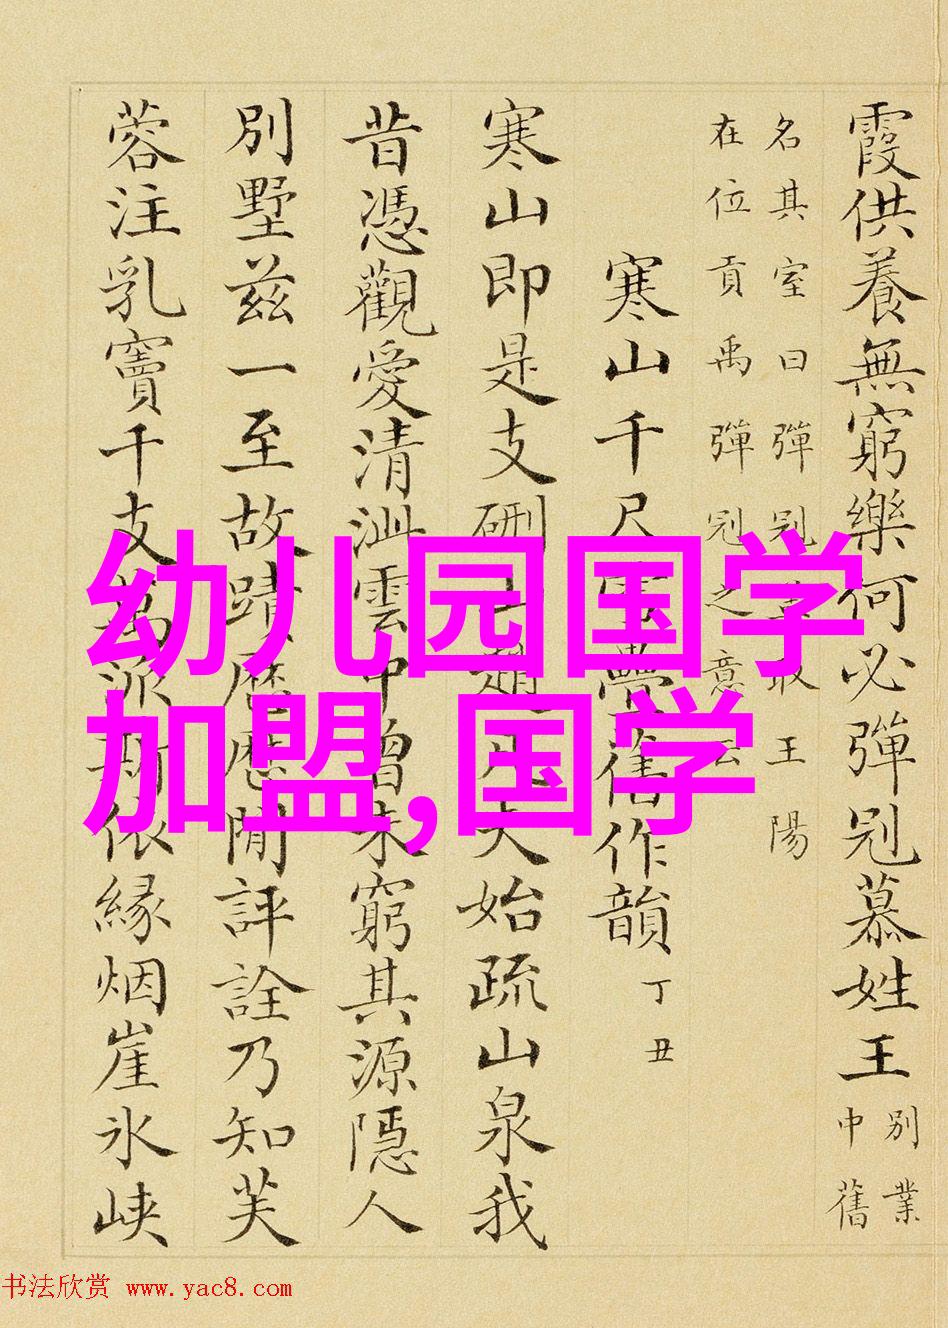 幼儿园国学
加盟,国学
霞供養無窮樂何必彈冠慕姓王
別業
中舊
名其室曰彈冠取王陽
在位貢禹彈冠之意云
寒山千尺疊舊作韻
丁丑
寒山即是支硎趙凡夫始疏山泉我
昔憑觀愛清雲中曾未窮其源隱人
別墅茲一至故蹟歷歷閒評詮乃知芙
蓉注乳竇千支萬派斯依緣烟崖氷峽
书法欣赏 www.yac8.com